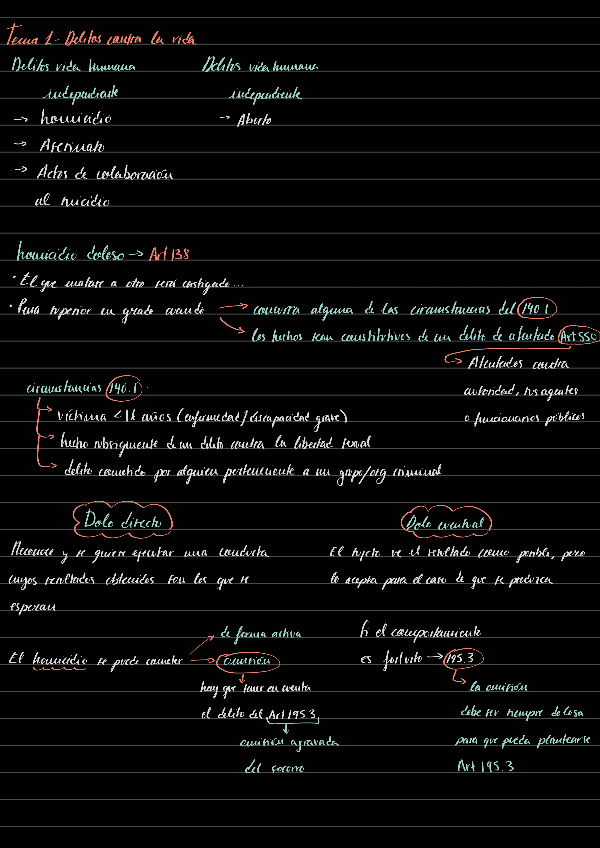 Tema 1- Delitos contra la vida
Delitos vida humana
independiente
→ homicidio
→ Asesinato
→ Actos de colaboración
al suicidio
Delitos vida humana
independiente
→ Aborto
homicidio doloso → Art 138
· El que matare a otro será castigado...
· Pena superior en grado cuando → concurra alguna de las circunstancias del 140.1
→ los hechos sean constitutivos de un delito de atentado Art 550
→ Atentados contra
autoridad, sus agentes
o funcionarios públicos
circunstancias 140.1:
→ víctima < 16 años (enfermedad/discapacidad grave)
→ hecho subsiguiente de un delito contra la libertad sexual
→ delito cometido por alguien perteneciente a un grupo/org criminal
Dolo directo
Reconoce y se quiere ejecutar una conducta
cuyos resultados obtenidos son los que se
esperan
Dolo eventual
El sujeto ve el resultado como posible, pero
lo acepta para el caso de que se produzca
El homicidio se puede cometer → de forma activa
→ omisión
hay que tener en cuenta
el delito del Art 195.3
omisión agravada
del socorro
Si el comportamiento
es fortuito → 195.3
→ la omisión
debe ser siempre dolosa
para que pueda plantearse
Art 195.3